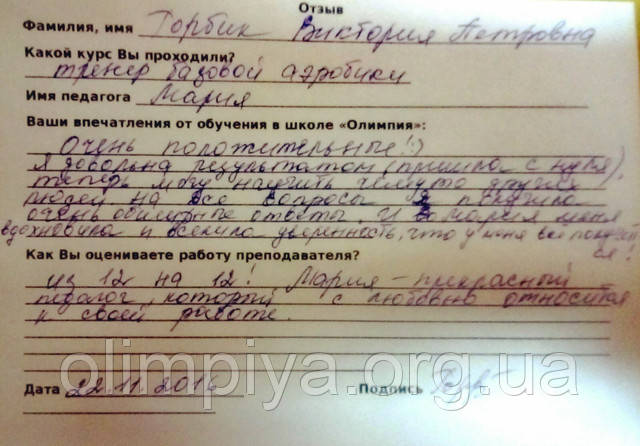 Отзыв
Фамилия, имя Горбик Виктория Петровна
Какой курс Вы проходили?
тренер базовой аэробики
Имя педагога Мария
Ваши впечатления от обучения в школе «Олимпия»:
Очень положительные! :)
Я довольна результатом (пришла с нуля),
теперь могу научить чему-то других
людей. На все вопросы я получила
очень обширные ответы. И Мария меня
вдохновила и вселила уверенность, что у меня всё получит
ся!
Как Вы оцениваете работу преподавателя?
из 12 на 12! Мария - прекрасный
педагог, который с любовью относится
к своей работе.
olimpiya.org.ua
Дата 22.11.2016 Подпись